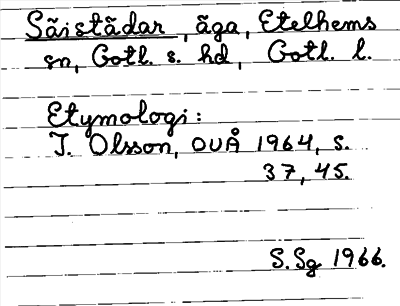 Säistädar, äga, Etelhems
sn, Gotl. s. hd, Gotl. l.
Etymologi:
I. Olsson, OUÅ 1964, s.
37, 45.
S.Sg 1966.